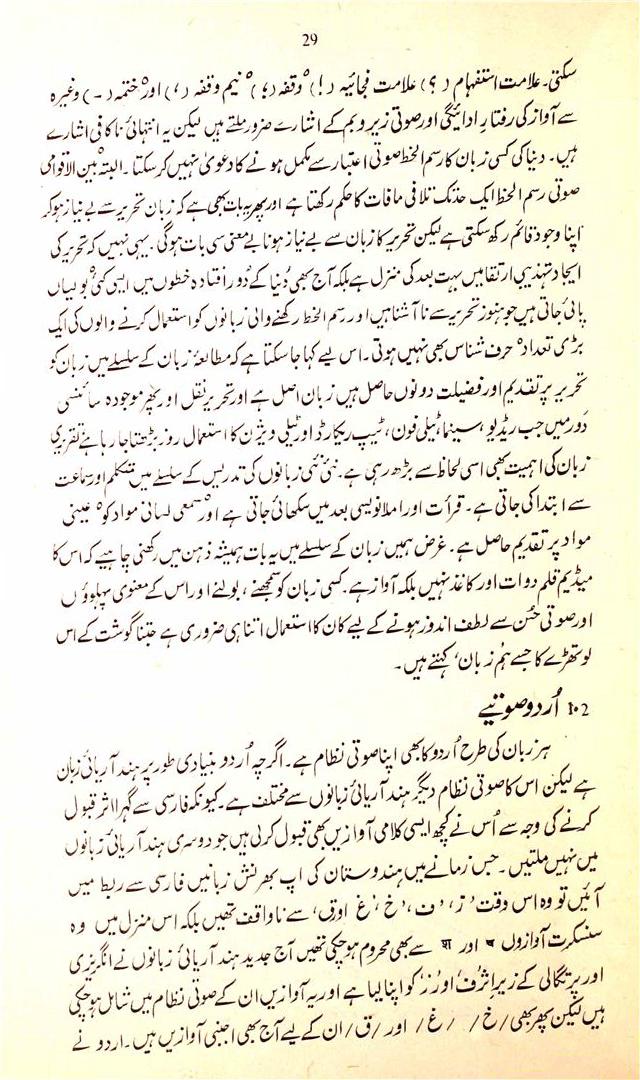 29
سکتی۔ علامت استفہام (؟) علامت فجائیہ (!) وقفہ (؛) نیم وقفہ (،) اور ختمہ (۔) وغیرہ
سے آواز کی رفتارِ ادائیگی اور صوتی زیر و بم کے اشارے ضرور ملتے ہیں لیکن یہ انتہائی ناکافی اشارے
ہیں۔ دنیا کی کسی زبان کا رسم الخط صوتی اعتبار سے مکمل ہونے کا دعویٰ نہیں کر سکتا۔ البتہ بین الاقوامی
صوتی رسم الخط ایک حد تک تلافی مافات کا حکم رکھتا ہے اور پھر یہ بات بھی ہے کہ زبان تحریر سے بے نیاز ہو کر
اپنا وجود قائم رکھ سکتی ہے لیکن تحریر کا زبان سے بے نیاز ہونا بے معنی سی بات ہوگی۔ یہی نہیں کہ تحریر کی
ایجاد تہذیبی ارتقا میں بہت بعد کی منزل ہے بلکہ آج بھی دُنیا کے دُور اُفتادہ خطوں میں ایسی کئی بولیاں
پائی جاتی ہیں جو ہنوز تحریر سے ناآشنا ہیں اور رسم الخط رکھنے والی زبانوں کو استعمال کرنے والوں کی ایک
بڑی تعداد حرف شناس بھی نہیں ہوتی۔ اس لیے کہا جا سکتا ہے کہ مطالعۂ زبان کے سلسلے میں زبان کو
تحریر پر تقدیم اور فضیلت دونوں حاصل ہیں زبان اصل ہے اور تحریر نقل اور پھر موجودہ سائنسی
دَور میں جب ریڈیو، سینما، ٹیلی فون، ٹیپ ریکارڈ اور ٹیلی ویژن کا استعمال روز بڑھتا جا رہا ہے تقریری
زبان کی اہمیت بھی اسی لحاظ سے بڑھ رہی ہے۔ نئی نئی زبانوں کی تدریس کے سلسلے میں تکلم اور سماعت
سے ابتدا کی جاتی ہے۔ قرأت اور املا نویسی بعد میں سکھائی جاتی ہے اور سمعی لسانی مواد کو عینی
مواد پر تقدیم حاصل ہے۔ غرض ہمیں زبان کے سلسلے میں یہ بات ہمیشہ ذہن میں رکھنی چاہیے کہ اس کا
میڈیم قلم دوات اور کاغذ نہیں بلکہ آواز ہے۔ کسی زبان کو سمجھنے، بولنے اور اس کے معنوی پہلوؤں
اور صوتی حُسن سے لطف اندوز ہونے کے لیے کان کا استعمال اتنا ہی ضروری ہے جتنا گوشت کے اس
لوتھڑے کا جسے ہم زبان، کہتے ہیں۔
1.2 اُردو صوتیے
ہر زبان کی طرح اُردو کا بھی اپنا صوتی نظام ہے۔ اگرچہ اُردو بنیادی طور پر ہند آریائی زبان
ہے لیکن اس کا صوتی نظام دیگر ہند آریائی زبانوں سے مختلف ہے۔ کیونکہ فارسی سے گہرا اثر قبول
کرنے کی وجہ سے اُس نے کچھ ایسی کلامی آوازیں بھی قبول کر لی ہیں جو دوسری ہند آریائی زبانوں
میں نہیں ملتیں۔ جس زمانے میں ہندوستان کی اپ بھرنش زبانیں فارسی سے ربط میں
آئیں تو وہ اس وقت ز، ف، خ، غ اور ق، سے ناواقف تھیں بلکہ اس منزل میں وہ
سنسکرت آوازوں ष اور श سے بھی محروم ہو چکی تھیں آج جدید ہند آریائی زبانوں نے انگریزی
اور پرتگالی کے زیر اثر ف اور ز کو اپنا لیا ہے اور یہ آوازیں ان کے صوتی نظام میں شامل ہو چکی
ہیں لیکن پھر بھی /خ/ /غ/ اور /ق/ ان کے لیے آج بھی اجنبی آوازیں ہیں۔ اردو نے